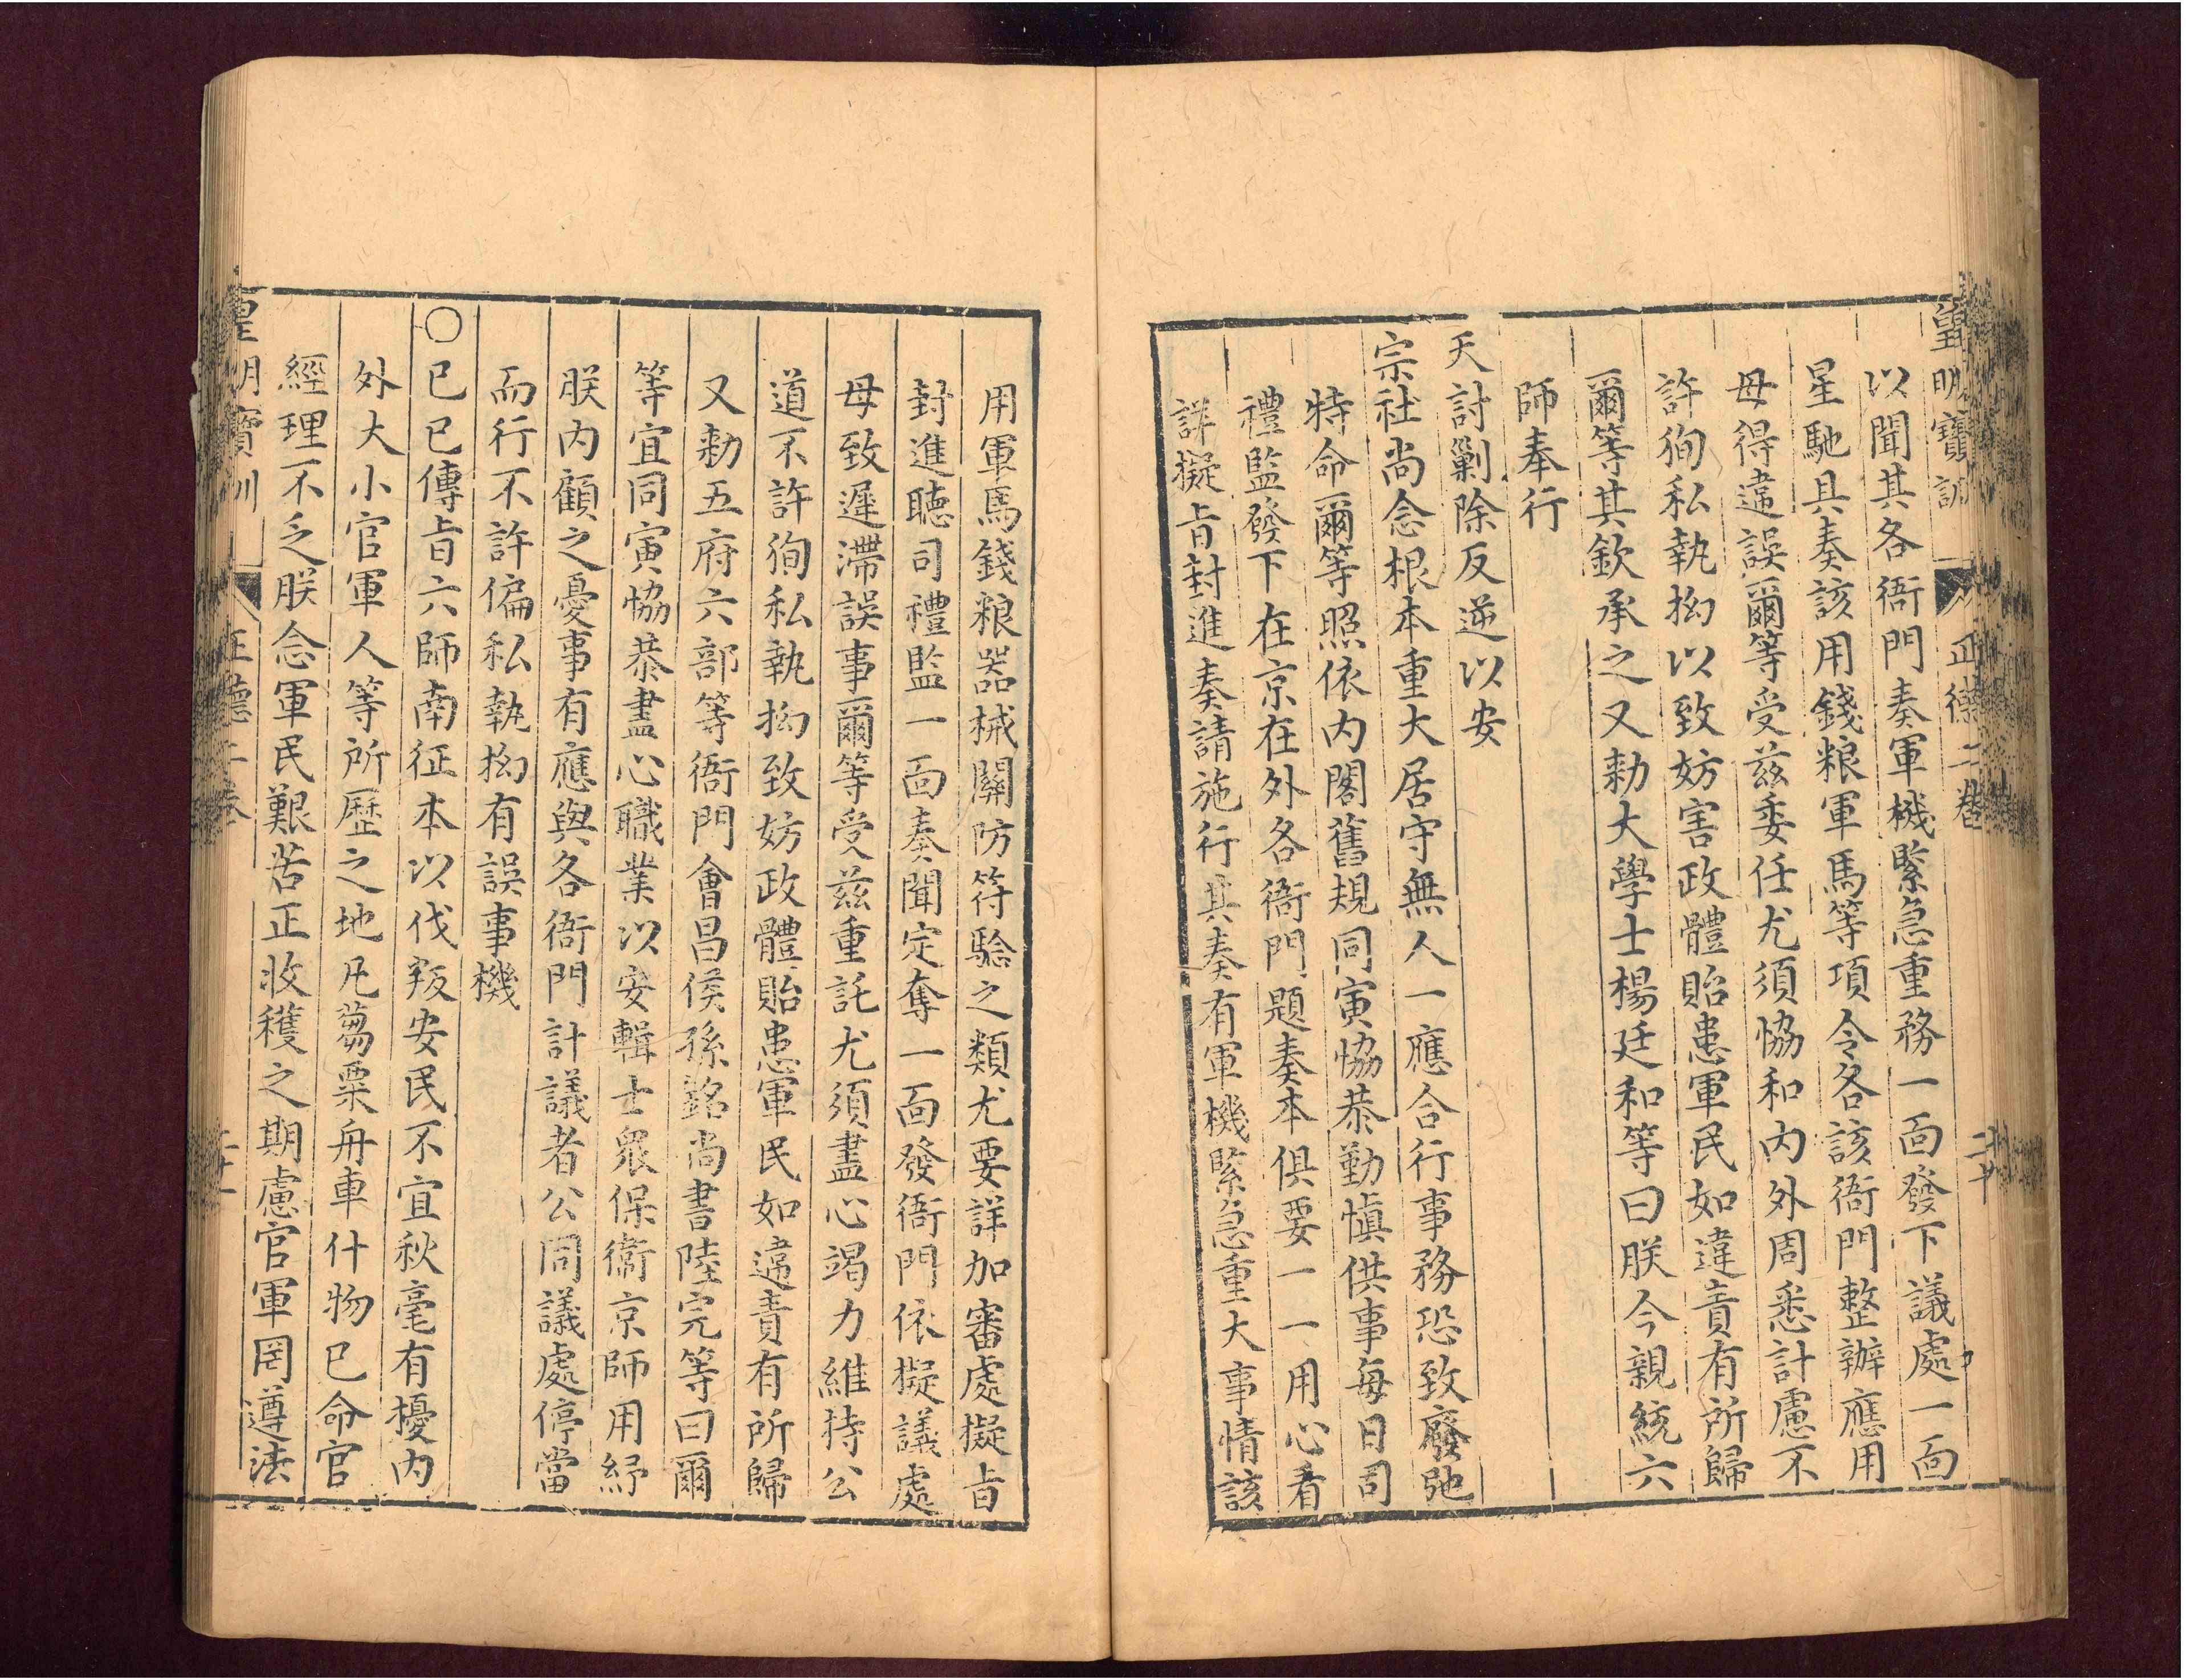 皇明寶訓 正德二卷 二十
以聞其各衙門奏軍機緊急重務一面發下議處一面
星馳具奏該用錢粮軍馬等項令各該衙門整辦應用
毋得違誤爾等受茲委任尤須恊和內外周悉計慮不
許徇私執拗以致妨害政體貽患軍民如違責有所歸
爾等其欽承之又勅大學士楊廷和等曰朕今親統六
師奉行
天討剿除反逆以安
宗社尚念根本重大居守無人一應合行事務恐致廢弛
特命爾等照依內閣舊規同寅恊恭勤慎供事每日司
禮監發下在京在外各衙門題奏本俱要一一用心看
詳擬旨封進奏請施行其奏有軍機緊急重大事情該
用軍馬錢粮器械關防符驗之類尤要詳加審處擬旨
封進聽司禮監一面奏聞定奪一面發衙門依擬議處
毋致遲滯誤事爾等受茲重託尤須盡心竭力維持公
道不許徇私執拗致妨政體貽患軍民如違責有所歸
又勅五府六部等衙門會昌侯孫銘尚書陸完等曰爾
等宜同寅恊恭盡心職業以安輯士衆保衞京師用紓
朕內顧之憂事有應與各衙門計議者公同議處停當
而行不許偏私執拗有誤事機
○己巳傳旨六師南征本以伐叛安民不宜秋毫有擾內
外大小官軍人等所歷之地凡蒭粟舟車什物已命官
經理不乏朕念軍民艱苦正收穫之期慮官軍罔遵法
皇明寶訓 正德二卷